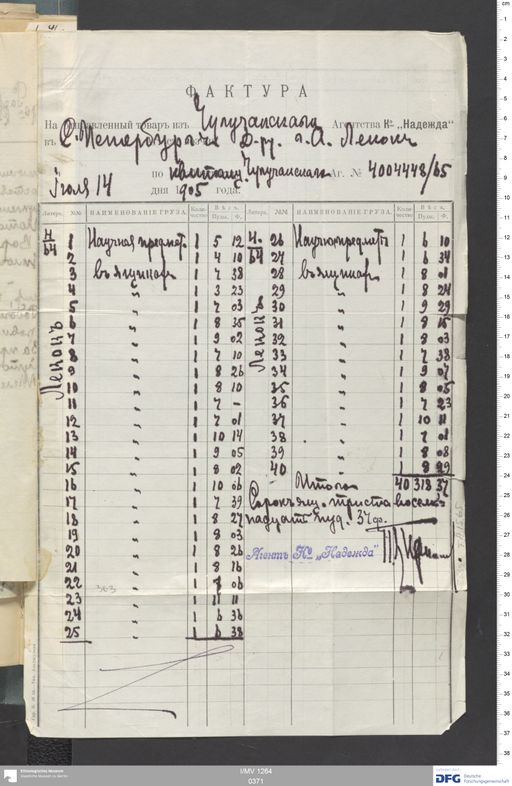 ФАКТУРА
На отправленный товаръ изъ Чугучакскаго Агентства Ко „Надежда"
въ С. Петербургъ г. А. Лекокъ
по квитанц. Чугучакскаго Аг. № 4004448/65
Іюля 14 дня 1905 года.
Литера. №№ НАИМЕНОВАНІЕ ГРУЗА. Коли-чество Вѣсъ. Пуды. Ф. Литера. №№ НАИМЕНОВАНІЕ ГРУЗА. Коли-чество Вѣсъ. Пуды. Ф.
Н/64 1 Научная предмет. 1 5 12 Н. 26 Научн предметъ 1 6 10
2 въ ящикахъ 1 4 10 64 27 въ ящикахъ 1 6 34
3 1 7 38 28 1 8 01
4 „ 1 3 23 29 „ 1 8 24
5 „ 1 7 03 30 „ 1 9 29
Лекокъ 6 „ 1 8 35 Лекокъ 31 „ 1 8 15
7 „ 1 9 02 32 „ 1 8 03
8 „ 1 7 10 33 „ 1 7 38
9 „ 1 8 26 34 „ 1 9 07
10 „ 1 8 10 35 „ 1 8 05
11 „ 1 7 – 36 „ 1 7 23
12 „ 1 7 01 37 „ 1 10 11
13 „ 1 10 14 38 „ 1 7 01
14 „ 1 9 05 39 „ 1 8 08
15 „ 1 8 02 40 „ 1 8 29
16 „ 1 10 06 Итого 40 318 37
17 „ 1 7 39 Сорокъ ящ. триста восем-
18 „ 1 8 27 надцать пуд. 37 ф.
19 „ 1 8 03
20 „ 1 8 26 Агентъ Ко „Надежда"
21 „ 1 8 16
22 „ 1 06
23 „ 1 11 11
24 „ 1 6 36
25 „ 1 6 38
363
Ethnologisches Museum
Staatliche Museen zu Berlin
I/MV 1264
0371
DFG Deutsche
Forschungsgemeinschaft